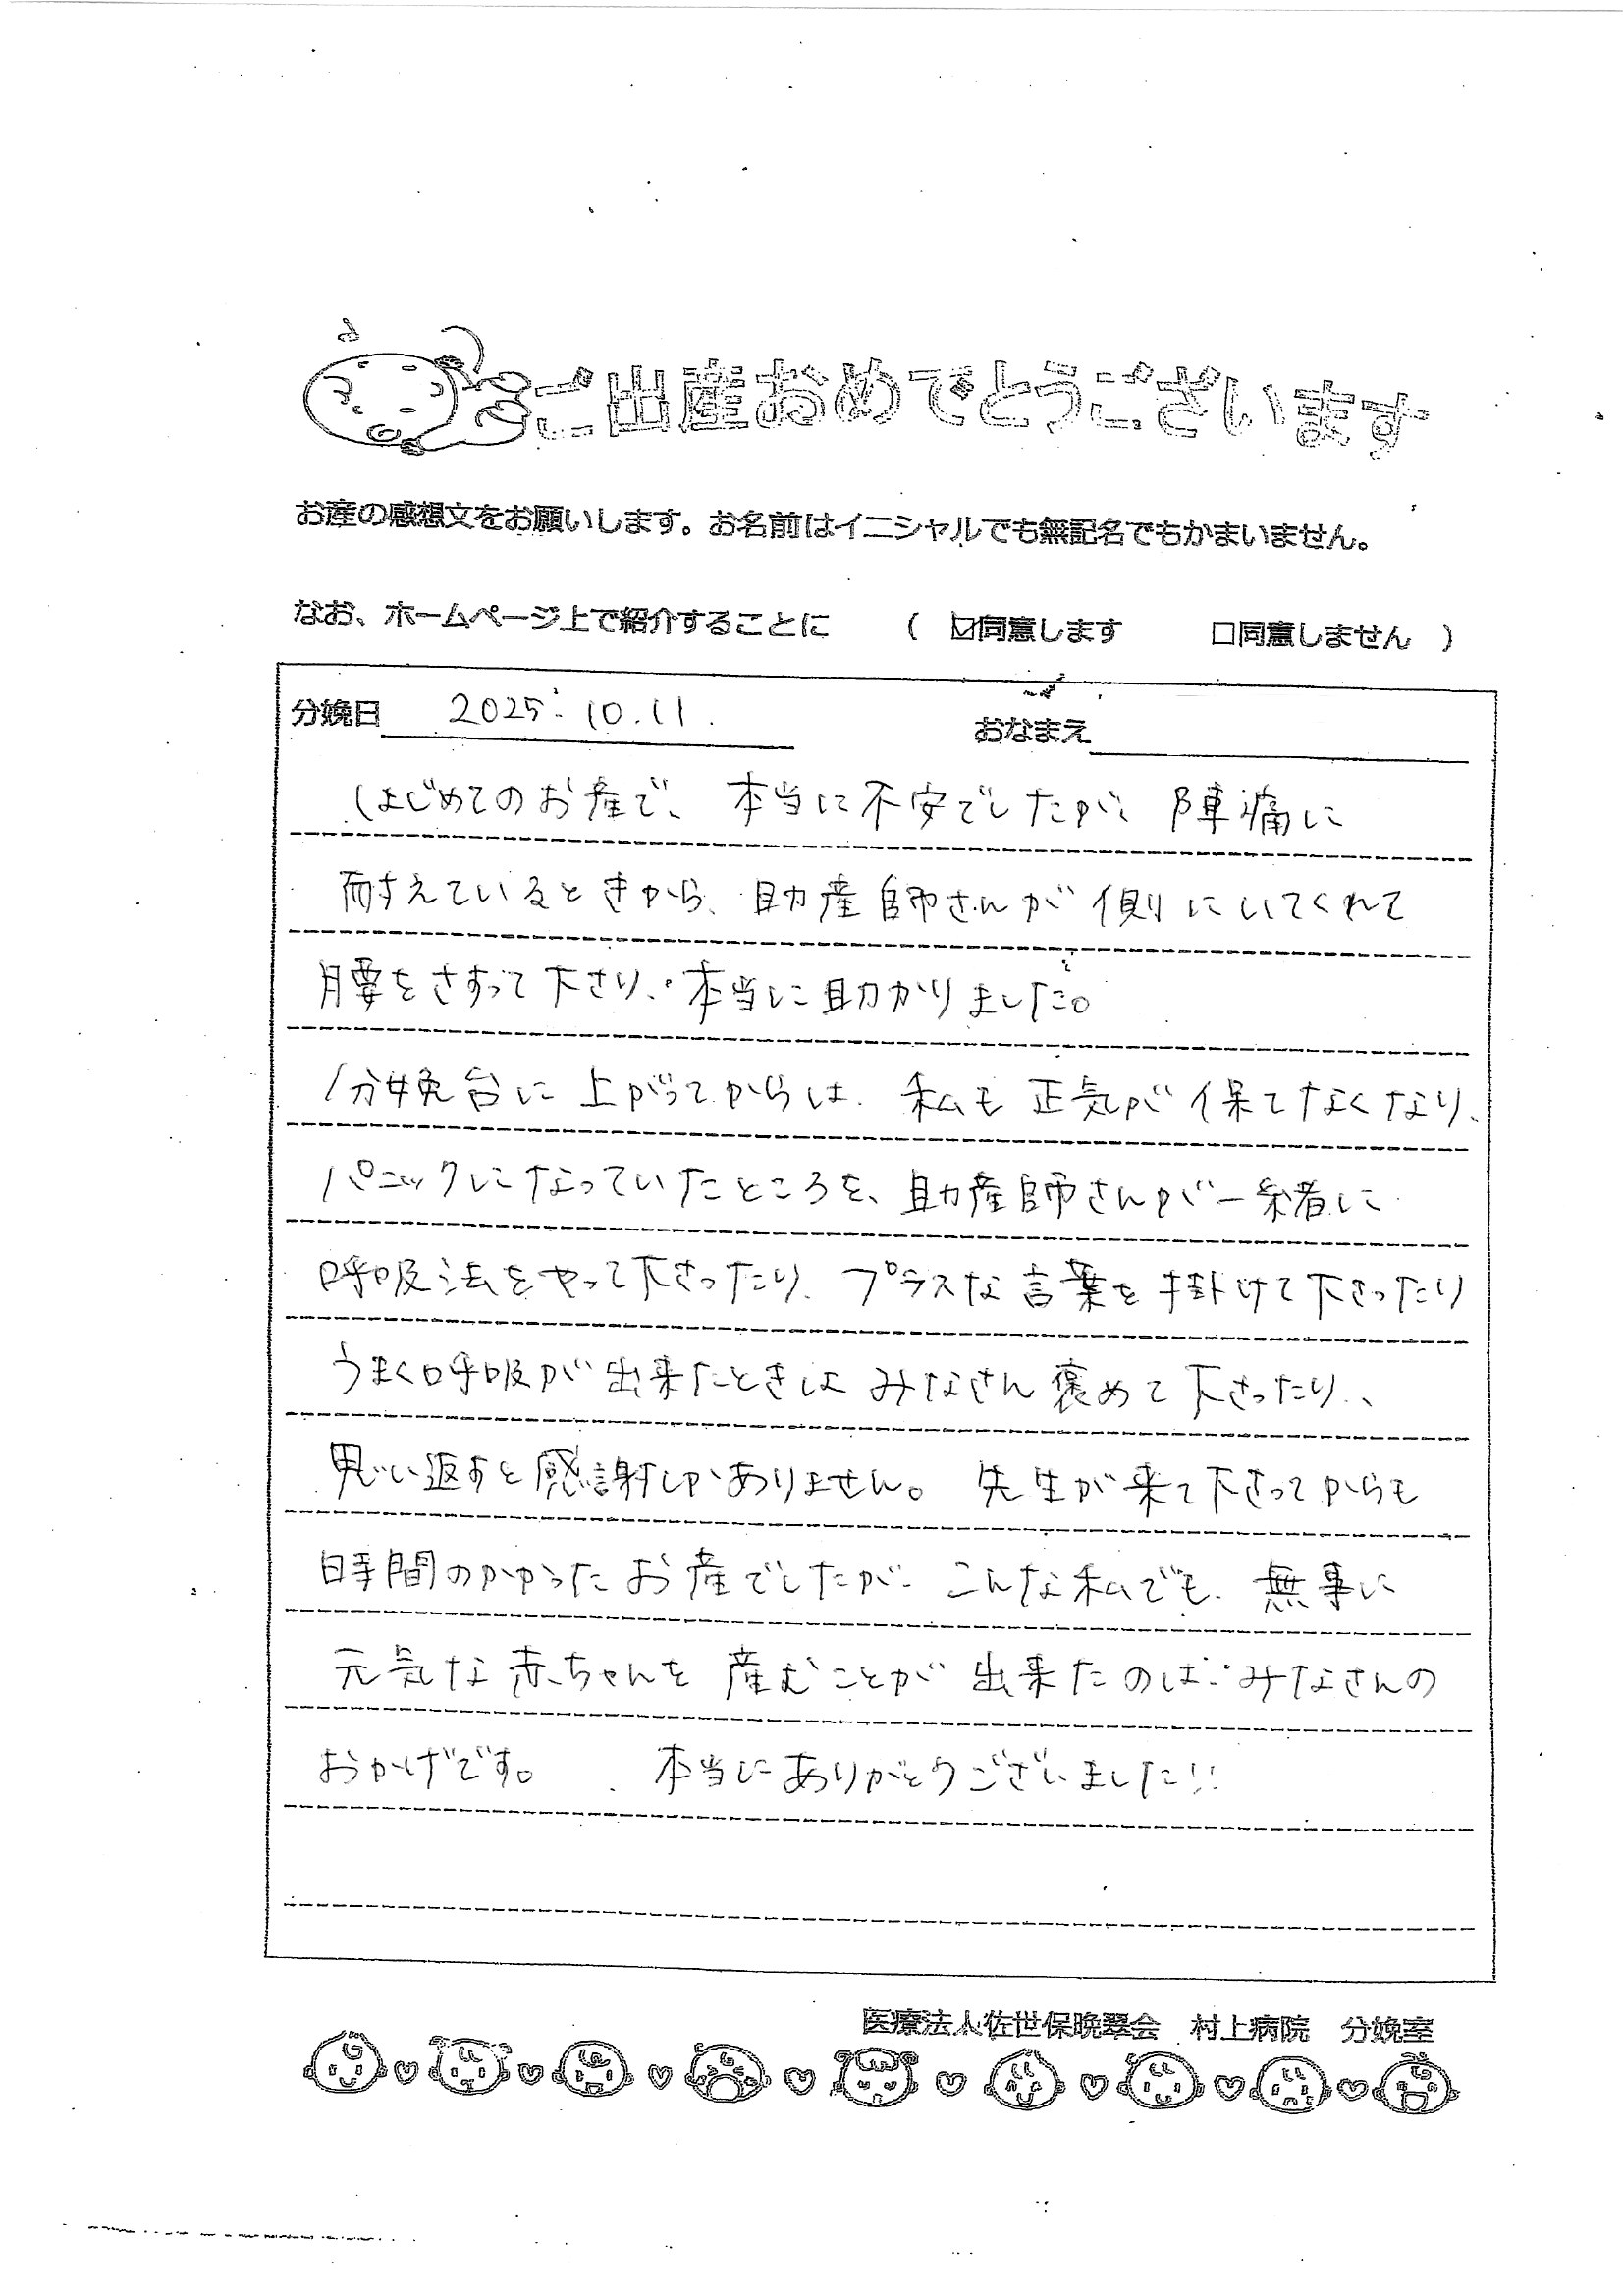 ご出産おめでとうございます
お産の感想文をお願いします。お名前はイニシャルでも無記名でもかまいません。
なお、ホームページ上で紹介することに ( ☑同意します □同意しません )
分娩日 2025.10.11. おなまえ
はじめてのお産で、本当に不安でしたが、陣痛に
耐えているときから、助産師さんが側にいてくれて
腰をさすって下さり、本当に助かりました。
分娩台に上がってからは、私も正気が保てなくなり、
パニックになっていたところを、助産師さんが一緒に
呼吸法をやって下さったり、プラスな言葉を掛けて下さったり
うまく呼吸が出来たときは みなさん褒めて下さったり、
思い返すと感謝しかありません。 先生が来て下さってからも
時間のかかったお産でしたが、こんな私でも、無事に
元気な赤ちゃんを産むことが出来たのは、みなさんの
おかげです。 本当にありがとうございました!!
医療法人佐世保晩翠会 村上病院 分娩室